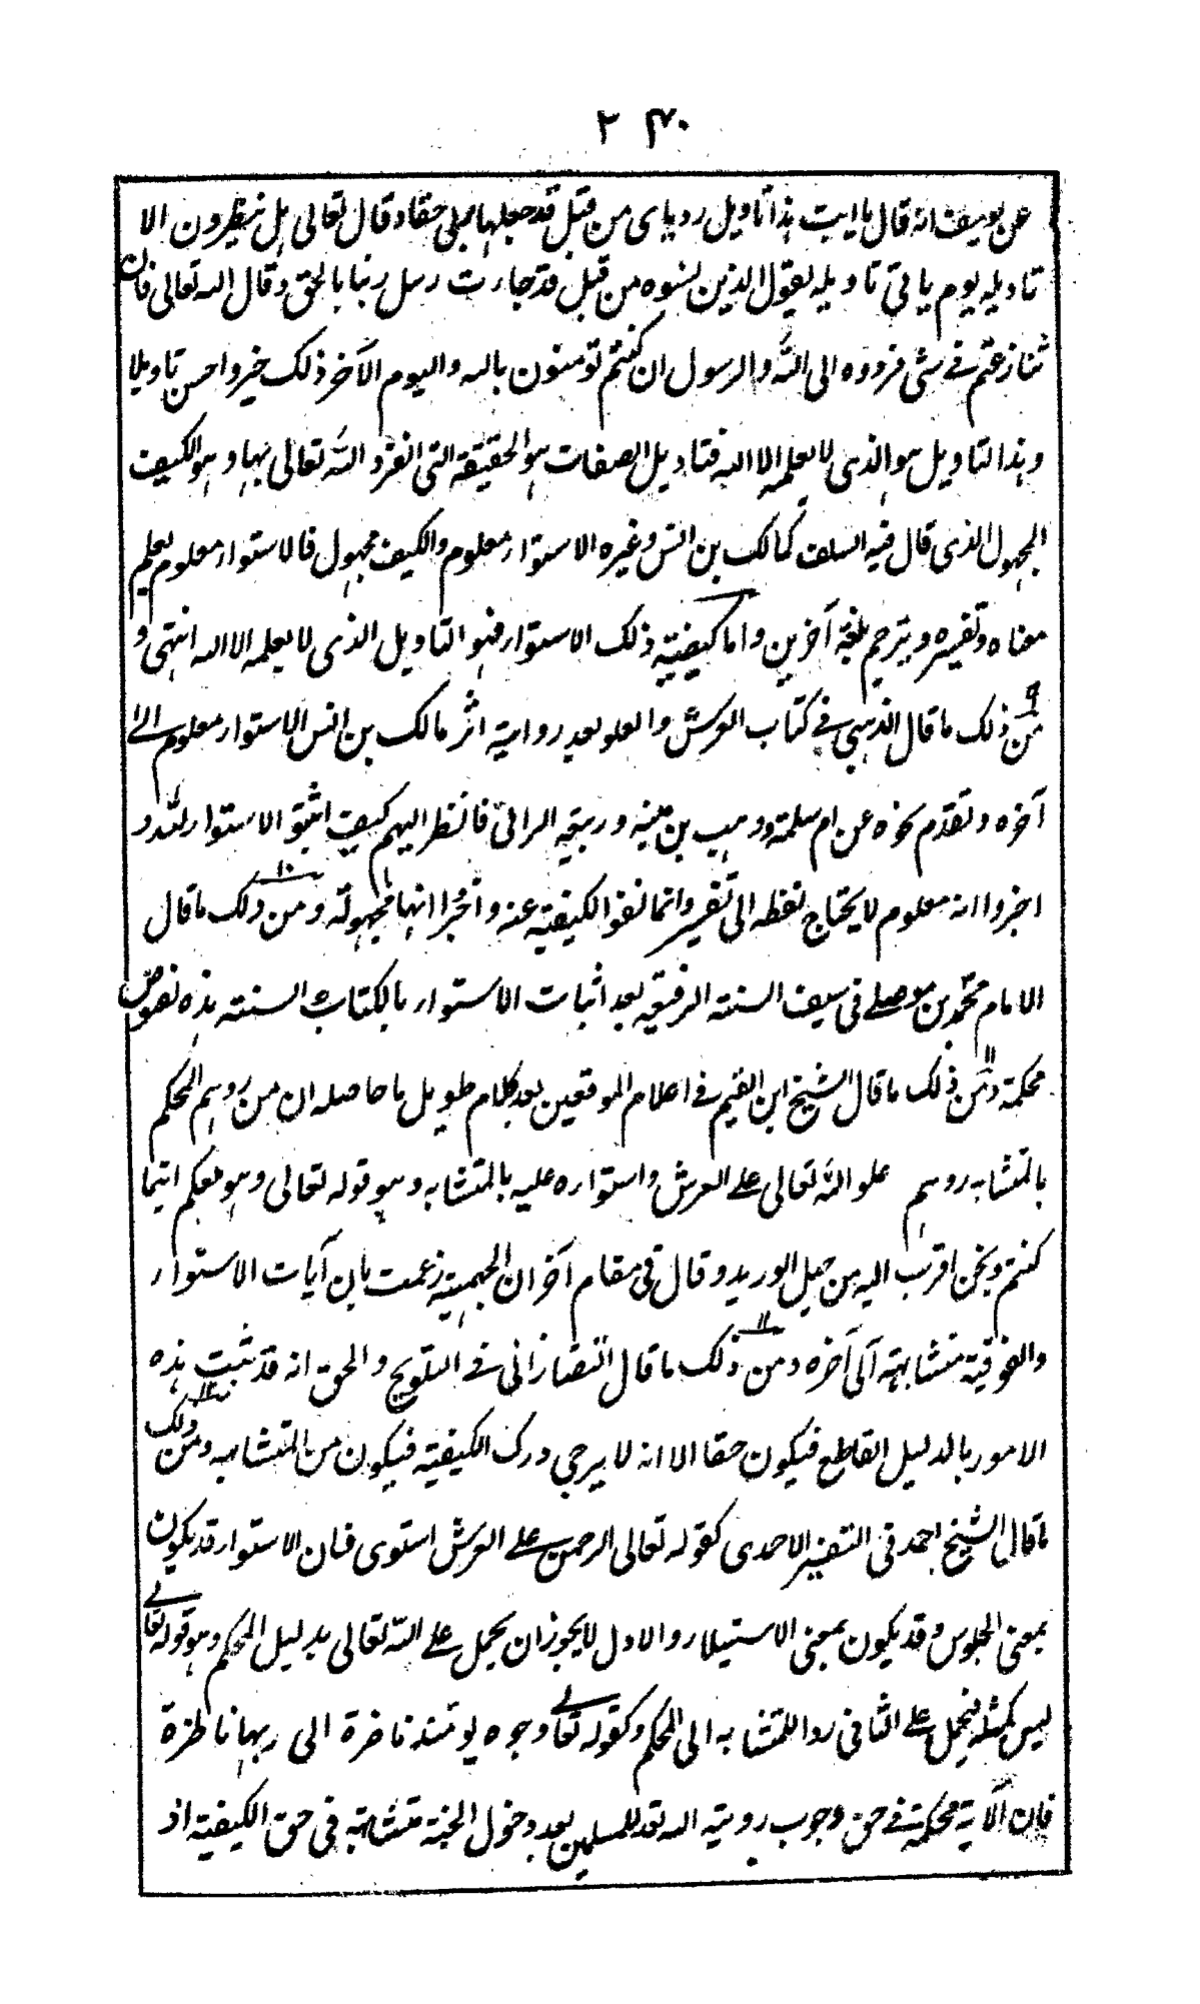 ۲۴۰
عن یوسف انه قال یا ابت هذا تاویل رویای من قبل قد جعلها ربی حقا و قال تعالی هل ینظرون الا
تاویله یوم یاتی تاویله یقول الذین نسوه من قبل قد جاءت رسل ربنا بالحق و قال الله تعالی فان
تنازعتم فی شی فردوه الی الله و الرسول ان کنتم تومنون بالله و الیوم الآخر ذلک خیر و احسن تاویلا
و هذا التاویل هو الذی لا یعلمه الا الله فتاویل الصفات هو الحقیقة التی انفرد الله تعالی بها و هو الکیف
المجهول الذی قال فیه السلف کمالک بن انس و غیره الاستواء معلوم و الکیف مجهول فالاستواء معلوم یعلم
معناه و تفسیره و یترجم بلغة آخرین و اما کیفیة ذلک الاستواء فهو التاویل الذی لا یعلمه الا الله انتهی و
۹ من ذلک ما قال الذهبی فی کتاب العرش و العلو بعد روایة اثر مالک بن انس الاستواء معلوم الی
آخره و تقدم نحوه عن ام سلمة و وهب بن منبه و ربیعة الرائی فانظر الیهم کیف اثبتوا الاستواء لله و
اخبروا انه معلوم لا یحتاج لفظه الی تفسیر و انما نفوا الکیفیة عنه و اخبروا انها مجهولة و من ۱۰ ذلک ما قال
الامام محمد بن موصلی فی سیف السنة الرفیعة بعد اثبات الاستواء بالکتاب و السنة هذه نصوص
محکمة و من ۱۱ ذلک ما قال الشیخ ابن القیم فی اعلام الموقعین بعد کلام طویل ما حاصله ان من ردهم المحکم
بالمتشابه ردهم علو الله تعالی علی العرش و استواره علیه بالمتشابه و هو قوله تعالی و هو معکم اینما
کنتم و نحن اقرب الیه من حبل الورید و قال فی مقام آخر ان الجهمیة زعمت بان آیات الاستواء
و الفوقیة متشابهة الی آخره و من ۱۲ ذلک ما قال التفتازانی فی التلویح و الحق انه قد ثبت هذه
الامور بالدلیل القاطع فیکون حقا الا انه لا یرجی درک الکیفیة فیکون من المتشابه و من ۱۳ ذلک
ما قال الشیخ احمد فی التفسیر الاحمدی کقوله تعالی الرحمن علی العرش استوی فان الاستواء قد یکون
بمعنی الجلوس و قد یکون بمعنی الاستیلاء و الاول لا یجوز ان یحمل علی الله تعالی بدلیل المحکم و هو قوله تعالی
لیس کمثله فیحمل علی الثانی ردا للمتشابه الی المحکم و کقوله تعالی وجوه یومئذ ناضرة الی ربها ناظرة
فان الآیة محکمة فی حق وجوب رویة الله تعد للمسلمین بعد دخول الجنة متشابهة فی حق الکیفیة اذ